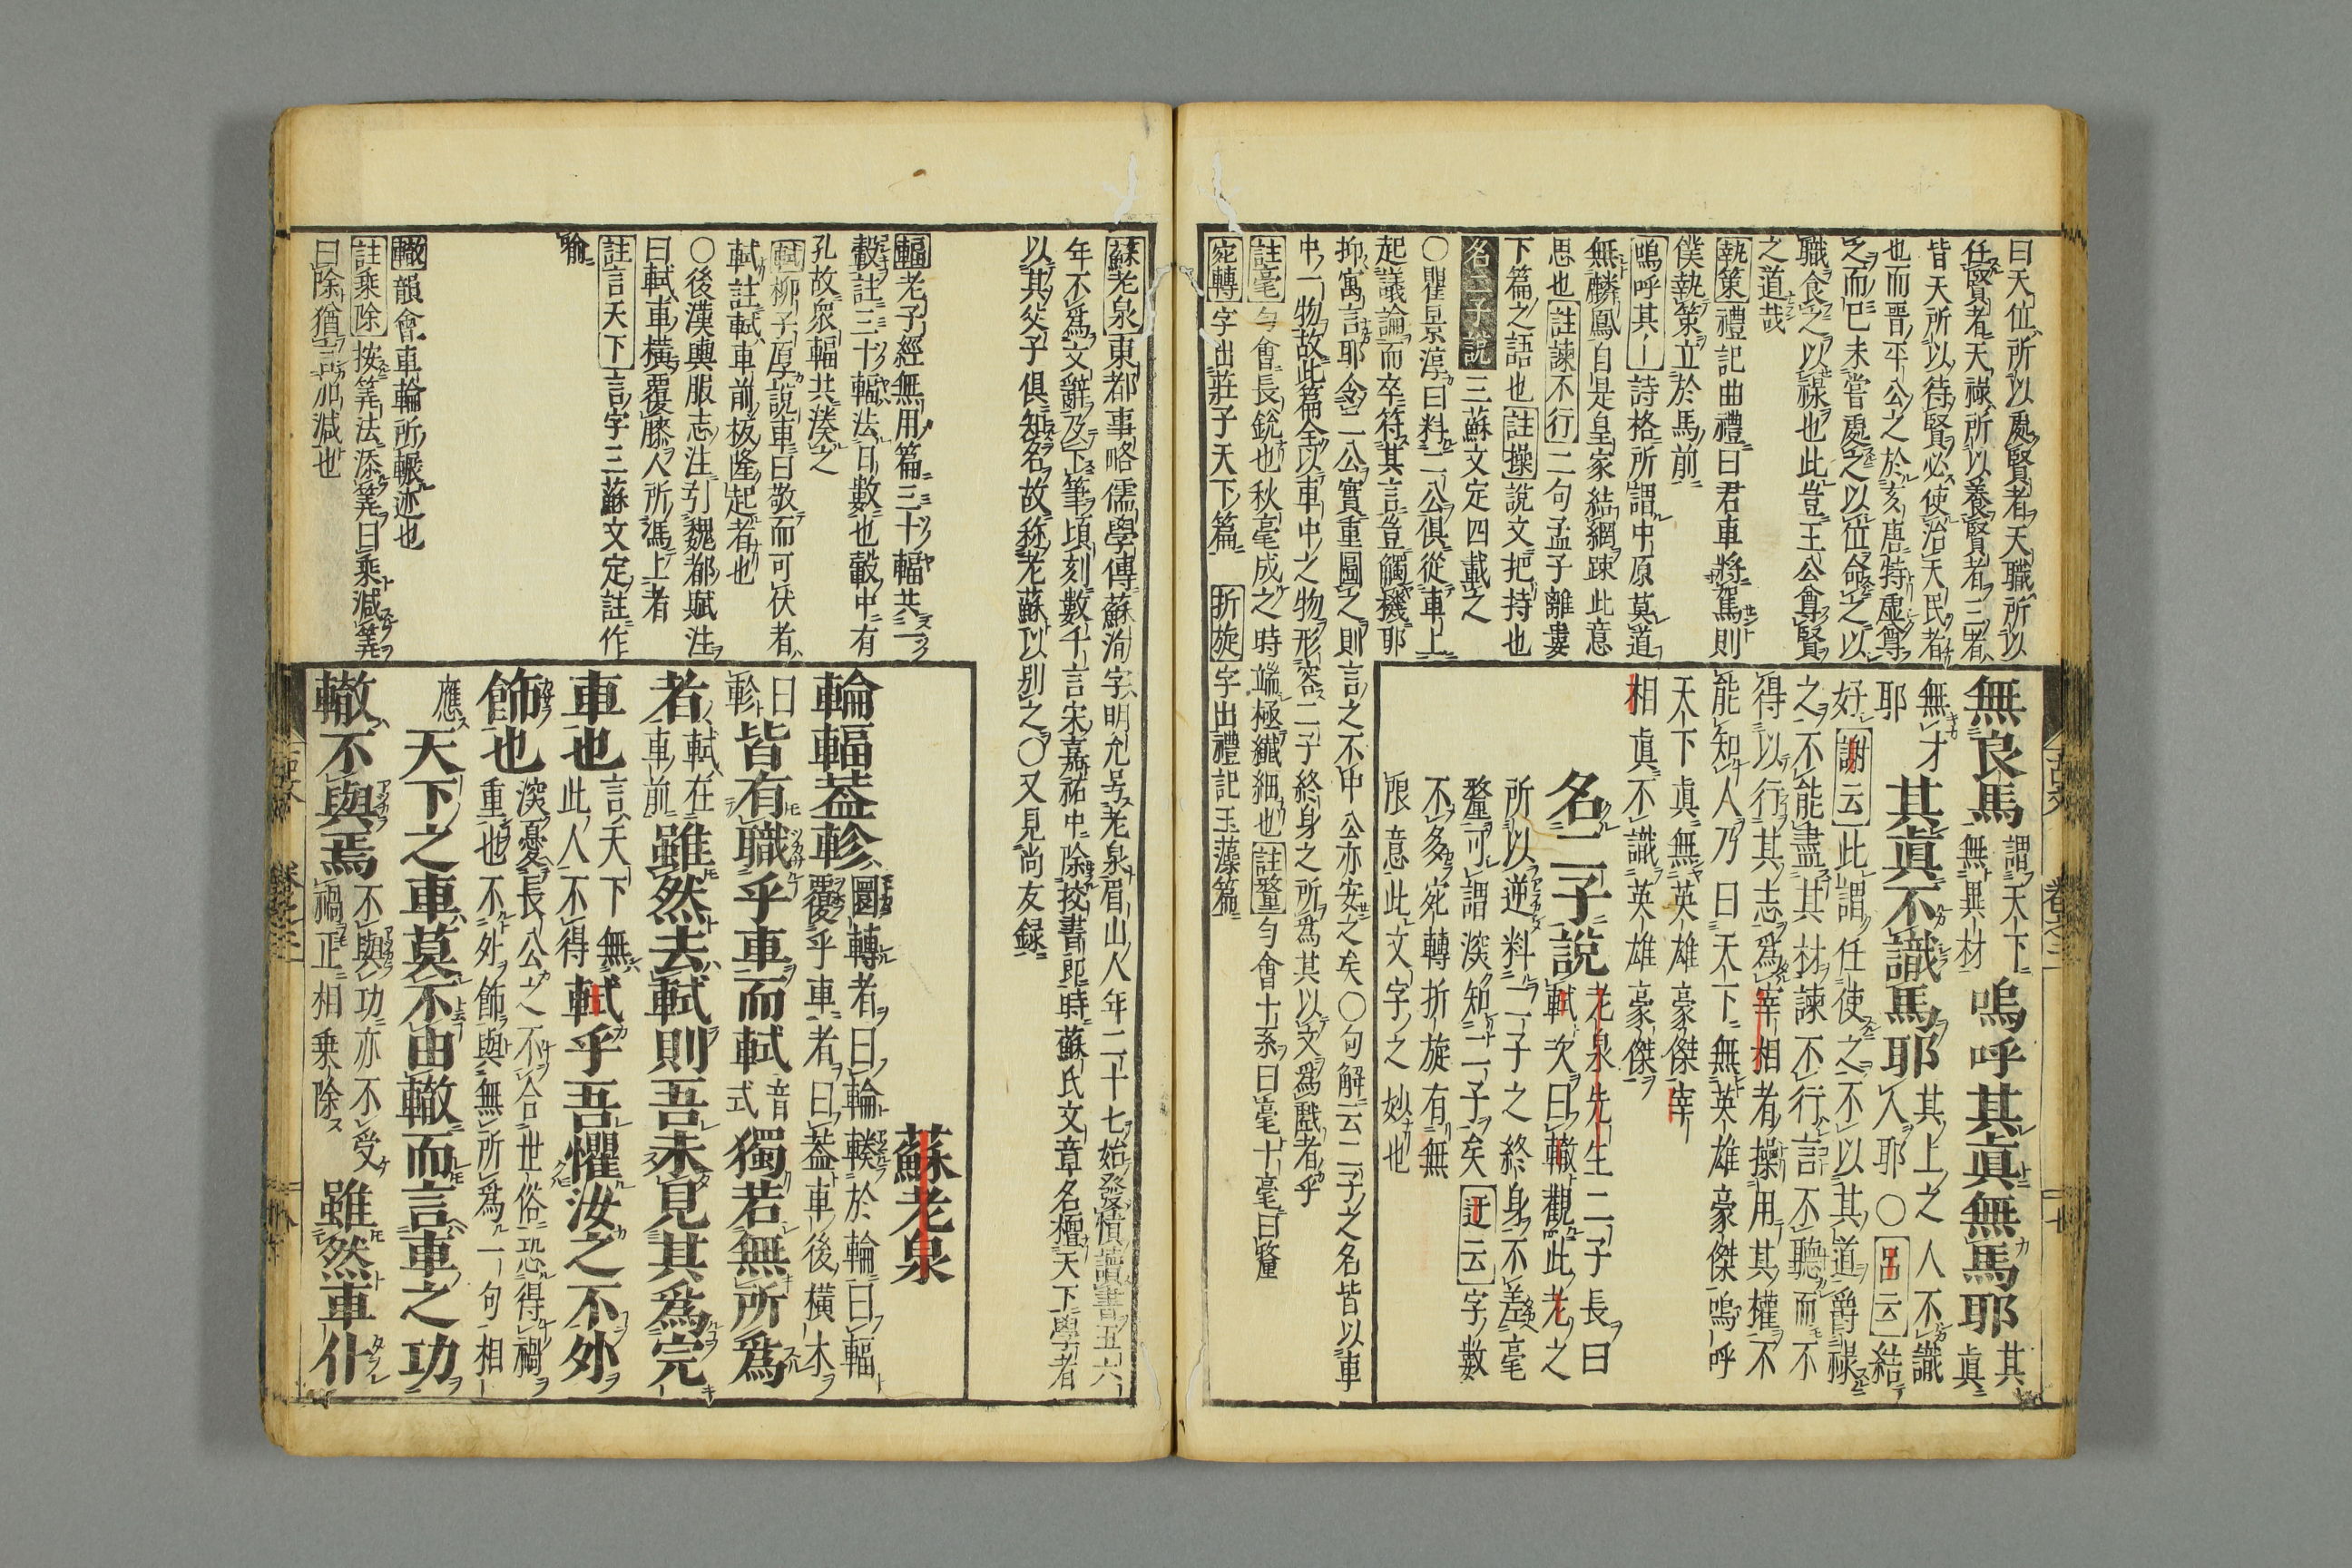 曰天位所以處賢者天職所以
任賢者天祿所以養賢者三者
皆天所以待賢必使治天民者
也而晋平公之於亥唐特虛尊
之而已未嘗處之以位命之以
職食之以祿也此豈王公尊賢
之道哉
執策禮記曲禮曰君車將駕則
僕執策立於馬前
嗚呼其｜詩格所謂中原莫道
無麟鳳自是皇家結網踈此意
思也註諫不行二句孟子離婁
下篇之語也註操說文把持也
名二子說三蘇文定四載之
〇瞿景淳曰料二公俱從車上
起議論而卒符其言豈觸機耶
抑寓言耶令二公實重圖之則言之不中公亦安之矣〇句解云二子之名皆以車
中一物故此篇全以車中之物形容二子終身之所爲其以文爲戲者乎
註毫勻會長銳也秋毫成之時端極纖細也註釐勻會十系曰毫十毫曰釐
宛轉字出莊子天下篇 折旋字出禮記玉藻篇
無良馬謂天下無異材嗚呼其眞無馬耶其眞
無才耶其眞不識馬耶其上之人不識人耶〇呂云結
好謝云此謂任使之不以其道爵祿
之不能盡其材諫不行言不聽而不
得以行其志爲宰相者操用其權不
能知人乃曰天下無英雄豪傑嗚呼
天下眞無英雄豪傑宰
相眞不識英雄豪傑
名二子說老泉先生二子長曰軾次曰轍觀此老之
所以逆料二子之終身不差毫
釐可謂深知二子矣迂云字數
不多宛轉折旋有無
限意此文字之妙也
古文 卷之二 二十七
蘇老泉東都事略儒學傳蘇洵字明允号老泉眉山人年二十七始發憤讀書五六
年不爲文辭乃下筆頃刻數千言宋嘉祐中除挍書郎時蘇氏文章名擅天下學者
以其父子俱知名故称老蘇以別之〇又見尚友録
輻老子經無用篇三十輻共一
轂註三十輻法日數也轂中有
孔故衆輻共湊之
軾柳子厚說車曰敬而可伏者
軾註軾車前板隆起者也
〇後漢輿服志注引魏都賦注
曰軾車橫覆膝人所馮上者
註言天下言字三蘇文定註作
喻
轍韻會車輪所輾迹也
註乘除按筭法添筭曰乘減筭
曰除猶言加減也
蘇老泉
輪輻蓋軫圜轉者曰輪轑於輪曰輻覆乎車者曰蓋車後橫木
曰軫皆有職乎車而軾音式獨若無所爲
者軾在車前雖然去軾則吾未見其爲完
車也言天下無此人不得軾乎吾懼汝之不外
飾也深憂長公之不合世俗恐得禍重也不外飾與無所爲一句相
應天下之車莫不由轍而言車之功
轍不與焉不與功亦不受禍正相乘除雖然車仆